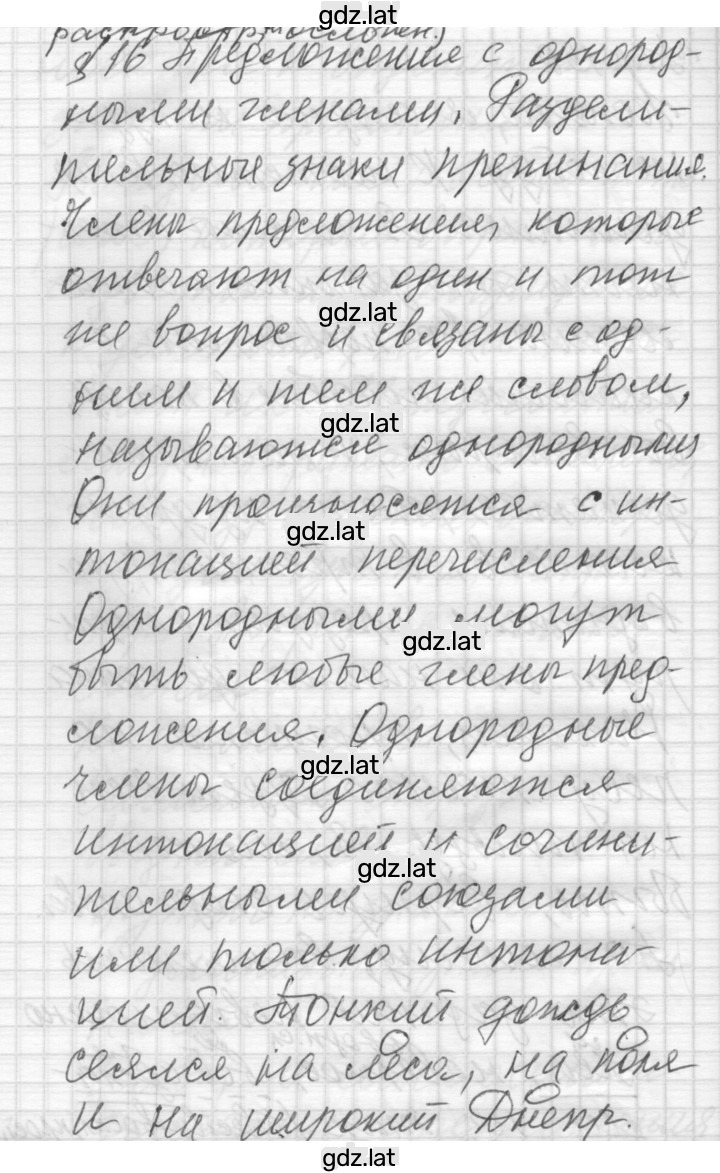 gdz.lat
§ 16 Предложения с однород-
ными членами. Раздели-
тельные знаки препинания.
Члены предложения, которые
отвечают на один и тот
gdz.lat
же вопрос и связаны с од-
ним и тем же словом,
gdz.lat
называются однородными
Они произносятся с ин-
gdz.lat
тонацией перечисления
Однородными могут
gdz.lat
быть любые члены пред-
ложения. Однородные
gdz.lat
члены соединяются
интонацией и сочини-
gdz.lat
тельными союзами
или только интона-
цией. Тонкий дождь
сеялся на леса, на поля
и на широкий Днепр.
gdz.lat